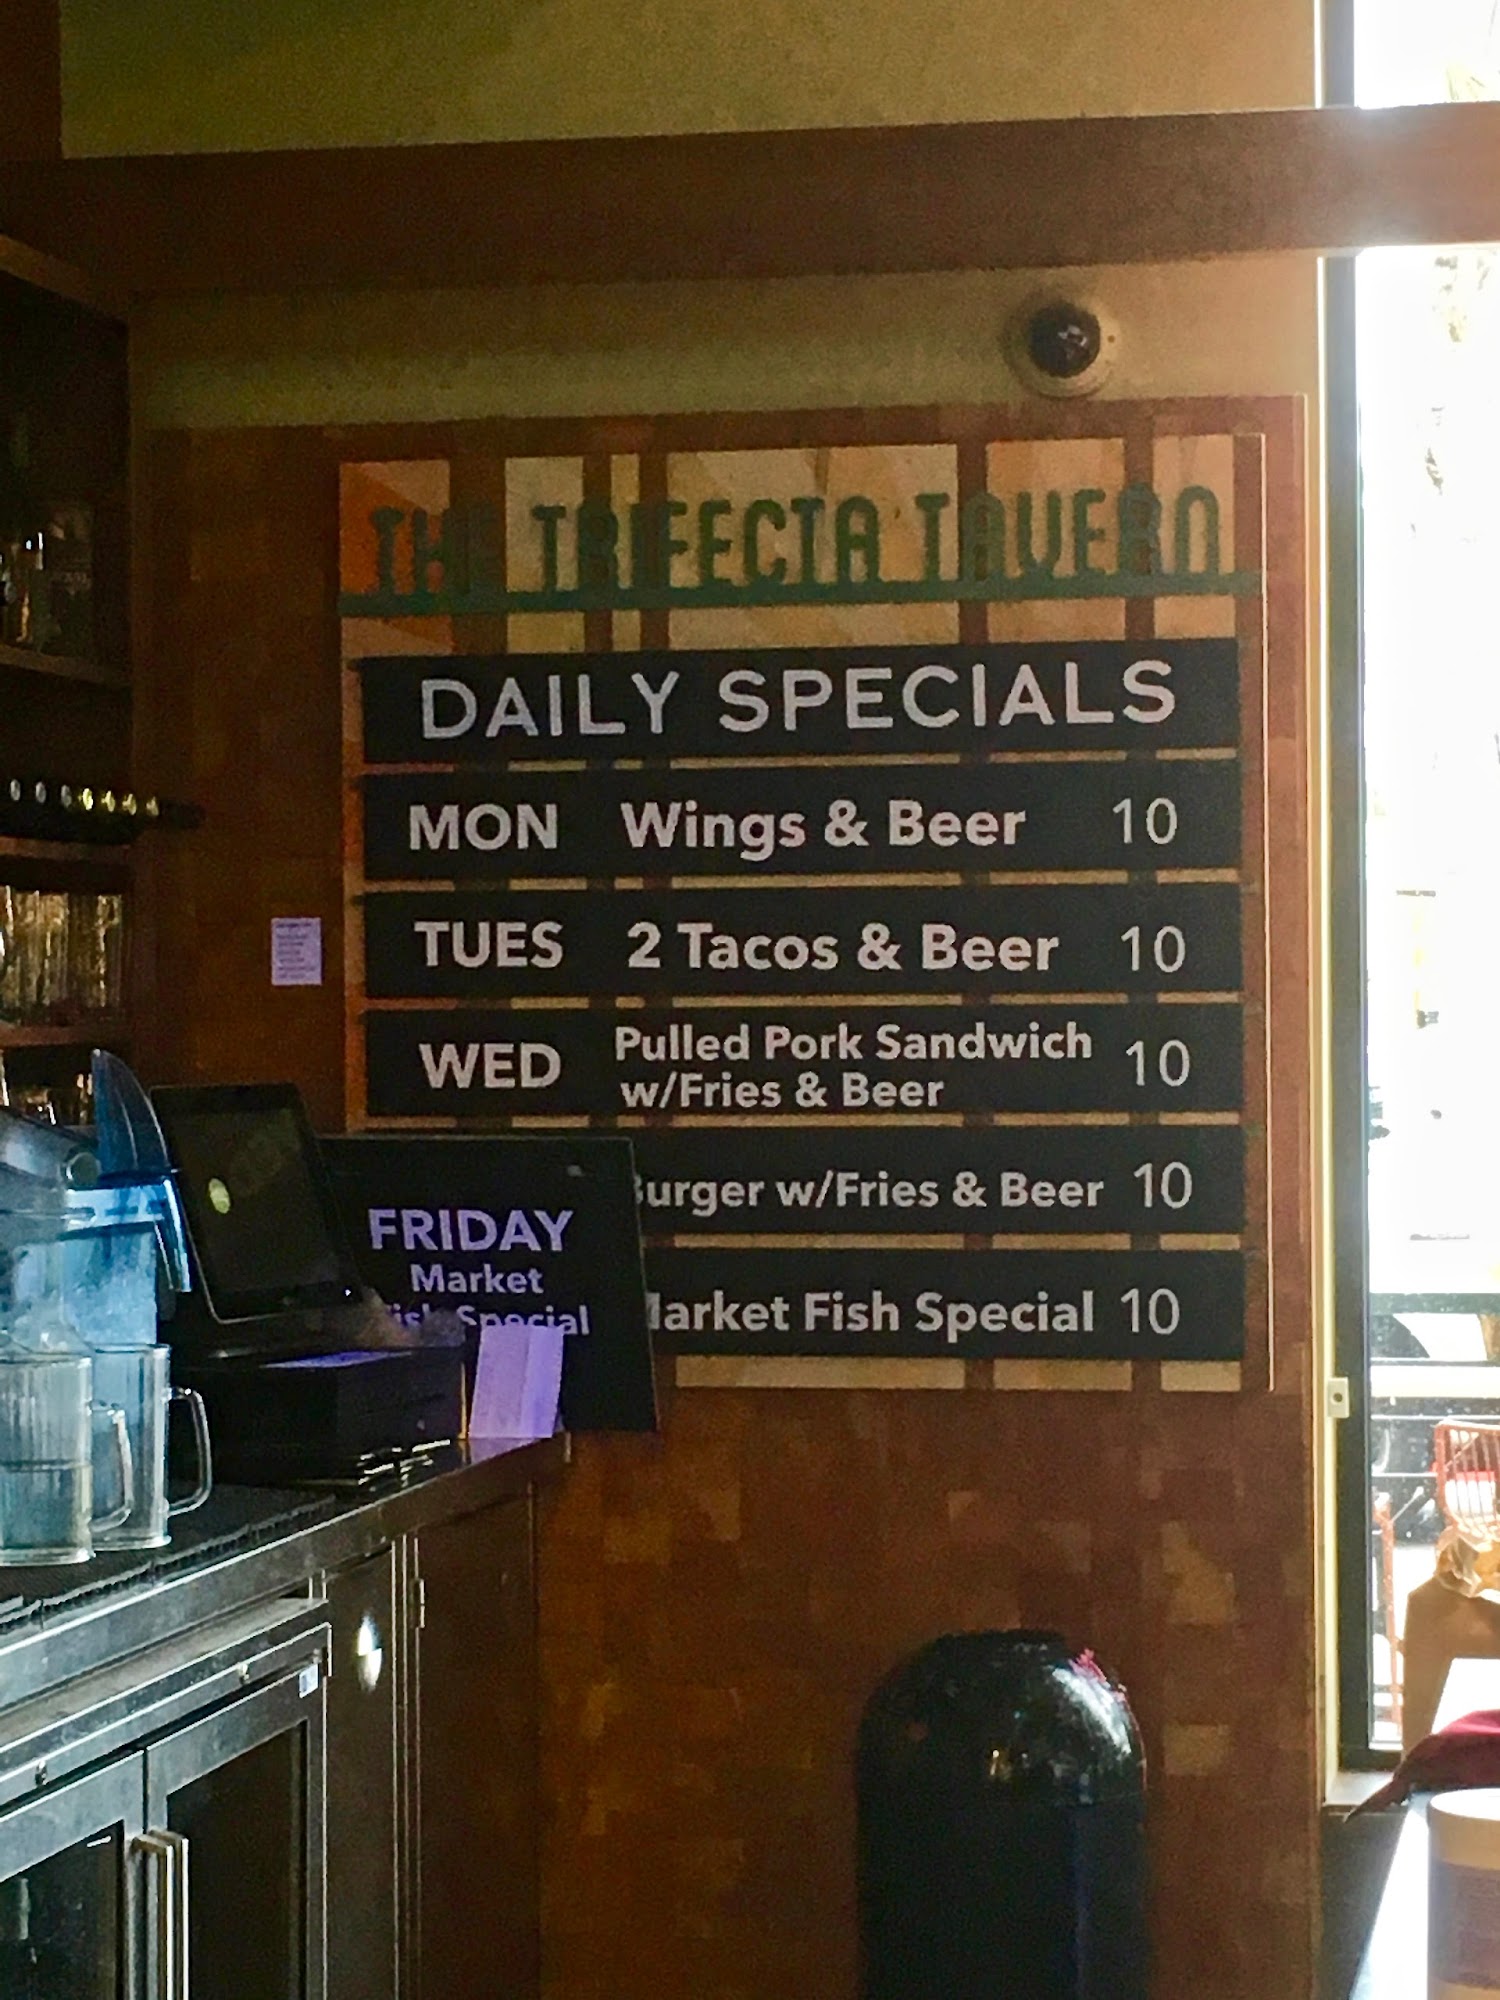 THE TRIFECTA TAVERN
DAILY SPECIALS
MON Wings & Beer 10
TUES 2 Tacos & Beer 10
WED Pulled Pork Sandwich
w/Fries & Beer 10
Burger w/Fries & Beer 10
Market Fish Special 10
FRIDAY
Market
Fish Special